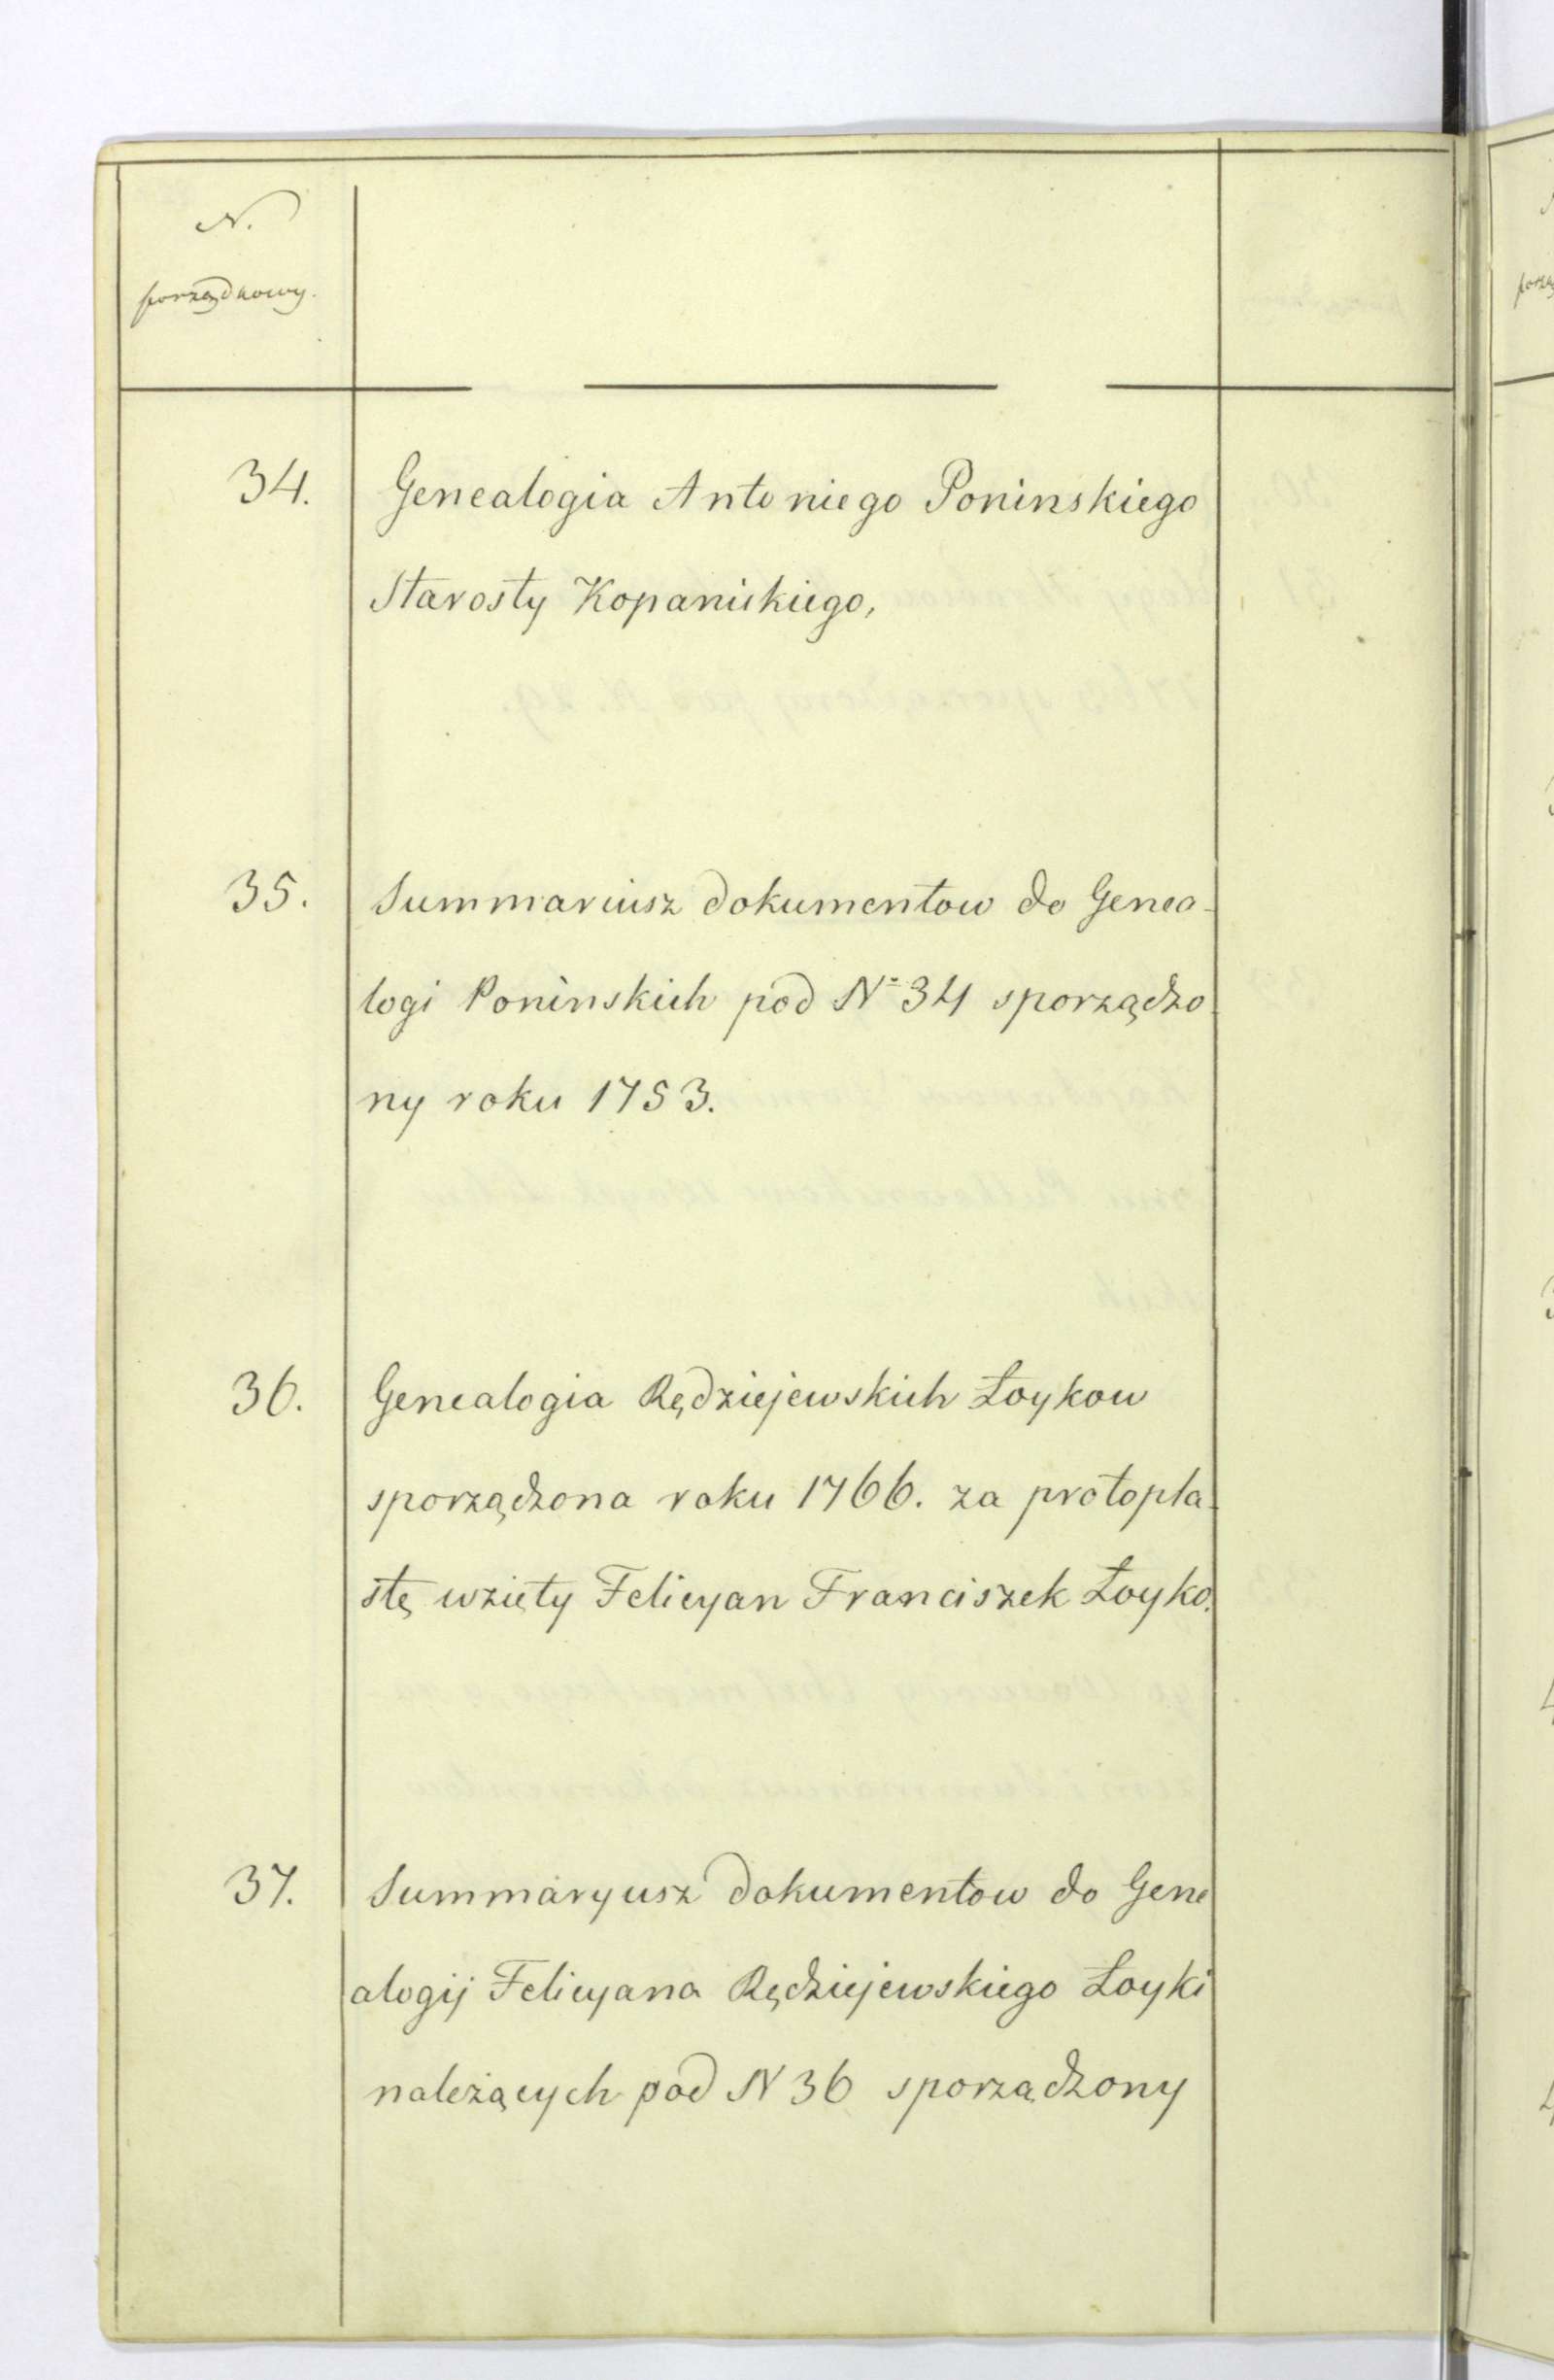 N.
porządkowy.
34. Genealogia Antoniego Poninskiego
Starosty Kopanickiego,
35. Summariusz dokumentow do Genea-
logi Poninskich pod N. 34 sporządzo-
ny roku 1753.
36. Genealogia Rędziejewskich Łoykow
sporządzona roku 1766. za protopla-
stę wzięty Felicyan Franciszek Łoyko.
37. Summaryusz dokumentow do Gene
alogij Felicyana Rędziejewskiego Łoyki
należących pod N 36 sporządzony